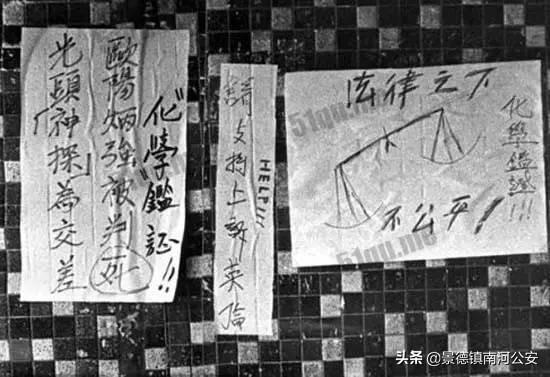 “化學”鑑証!!
歐陽炳強被判死
光頭「神探」為交差
HELP!!!
請支持上訴英倫
法律之下
不公平!
化學鑑證!!!
51qu.me
51qu.me
头条 @景德镇南河公安